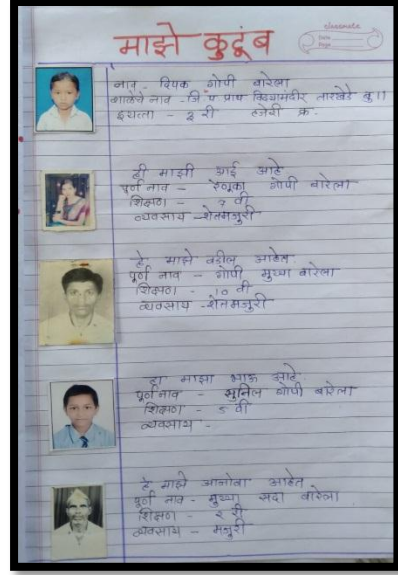 माझे कुटूंब
classmate
Date
Page
नाव - दिपक गोपी बारेला
शाळेचे नाव - जि. प प्राथ विद्यामंदीर तारखेडे बु।।
इयत्ता - ३ री हजेरी क्र.
ही माझी आई आहे
पूर्ण नाव - रेणूका गोपी बारेला
शिक्षण - ७ वी
व्यवसाय - शेतमजुरी
हे माझे वडील आहेत.
पूर्ण नाव - गोपी मुथ्या बारेला
शिक्षण - १० वी
व्यवसाय - शेतमजुरी
हा माझा भाऊ आहे.
पूर्ण नाव - सुनिल गोपी बारेला
शिक्षण - ५ वी
व्यवसाय -
हे माझे आजोबा आहेत
पूर्ण नाव - मुथ्या सदा बारेला
शिक्षण - २ री
व्यवसाय - मजुरी